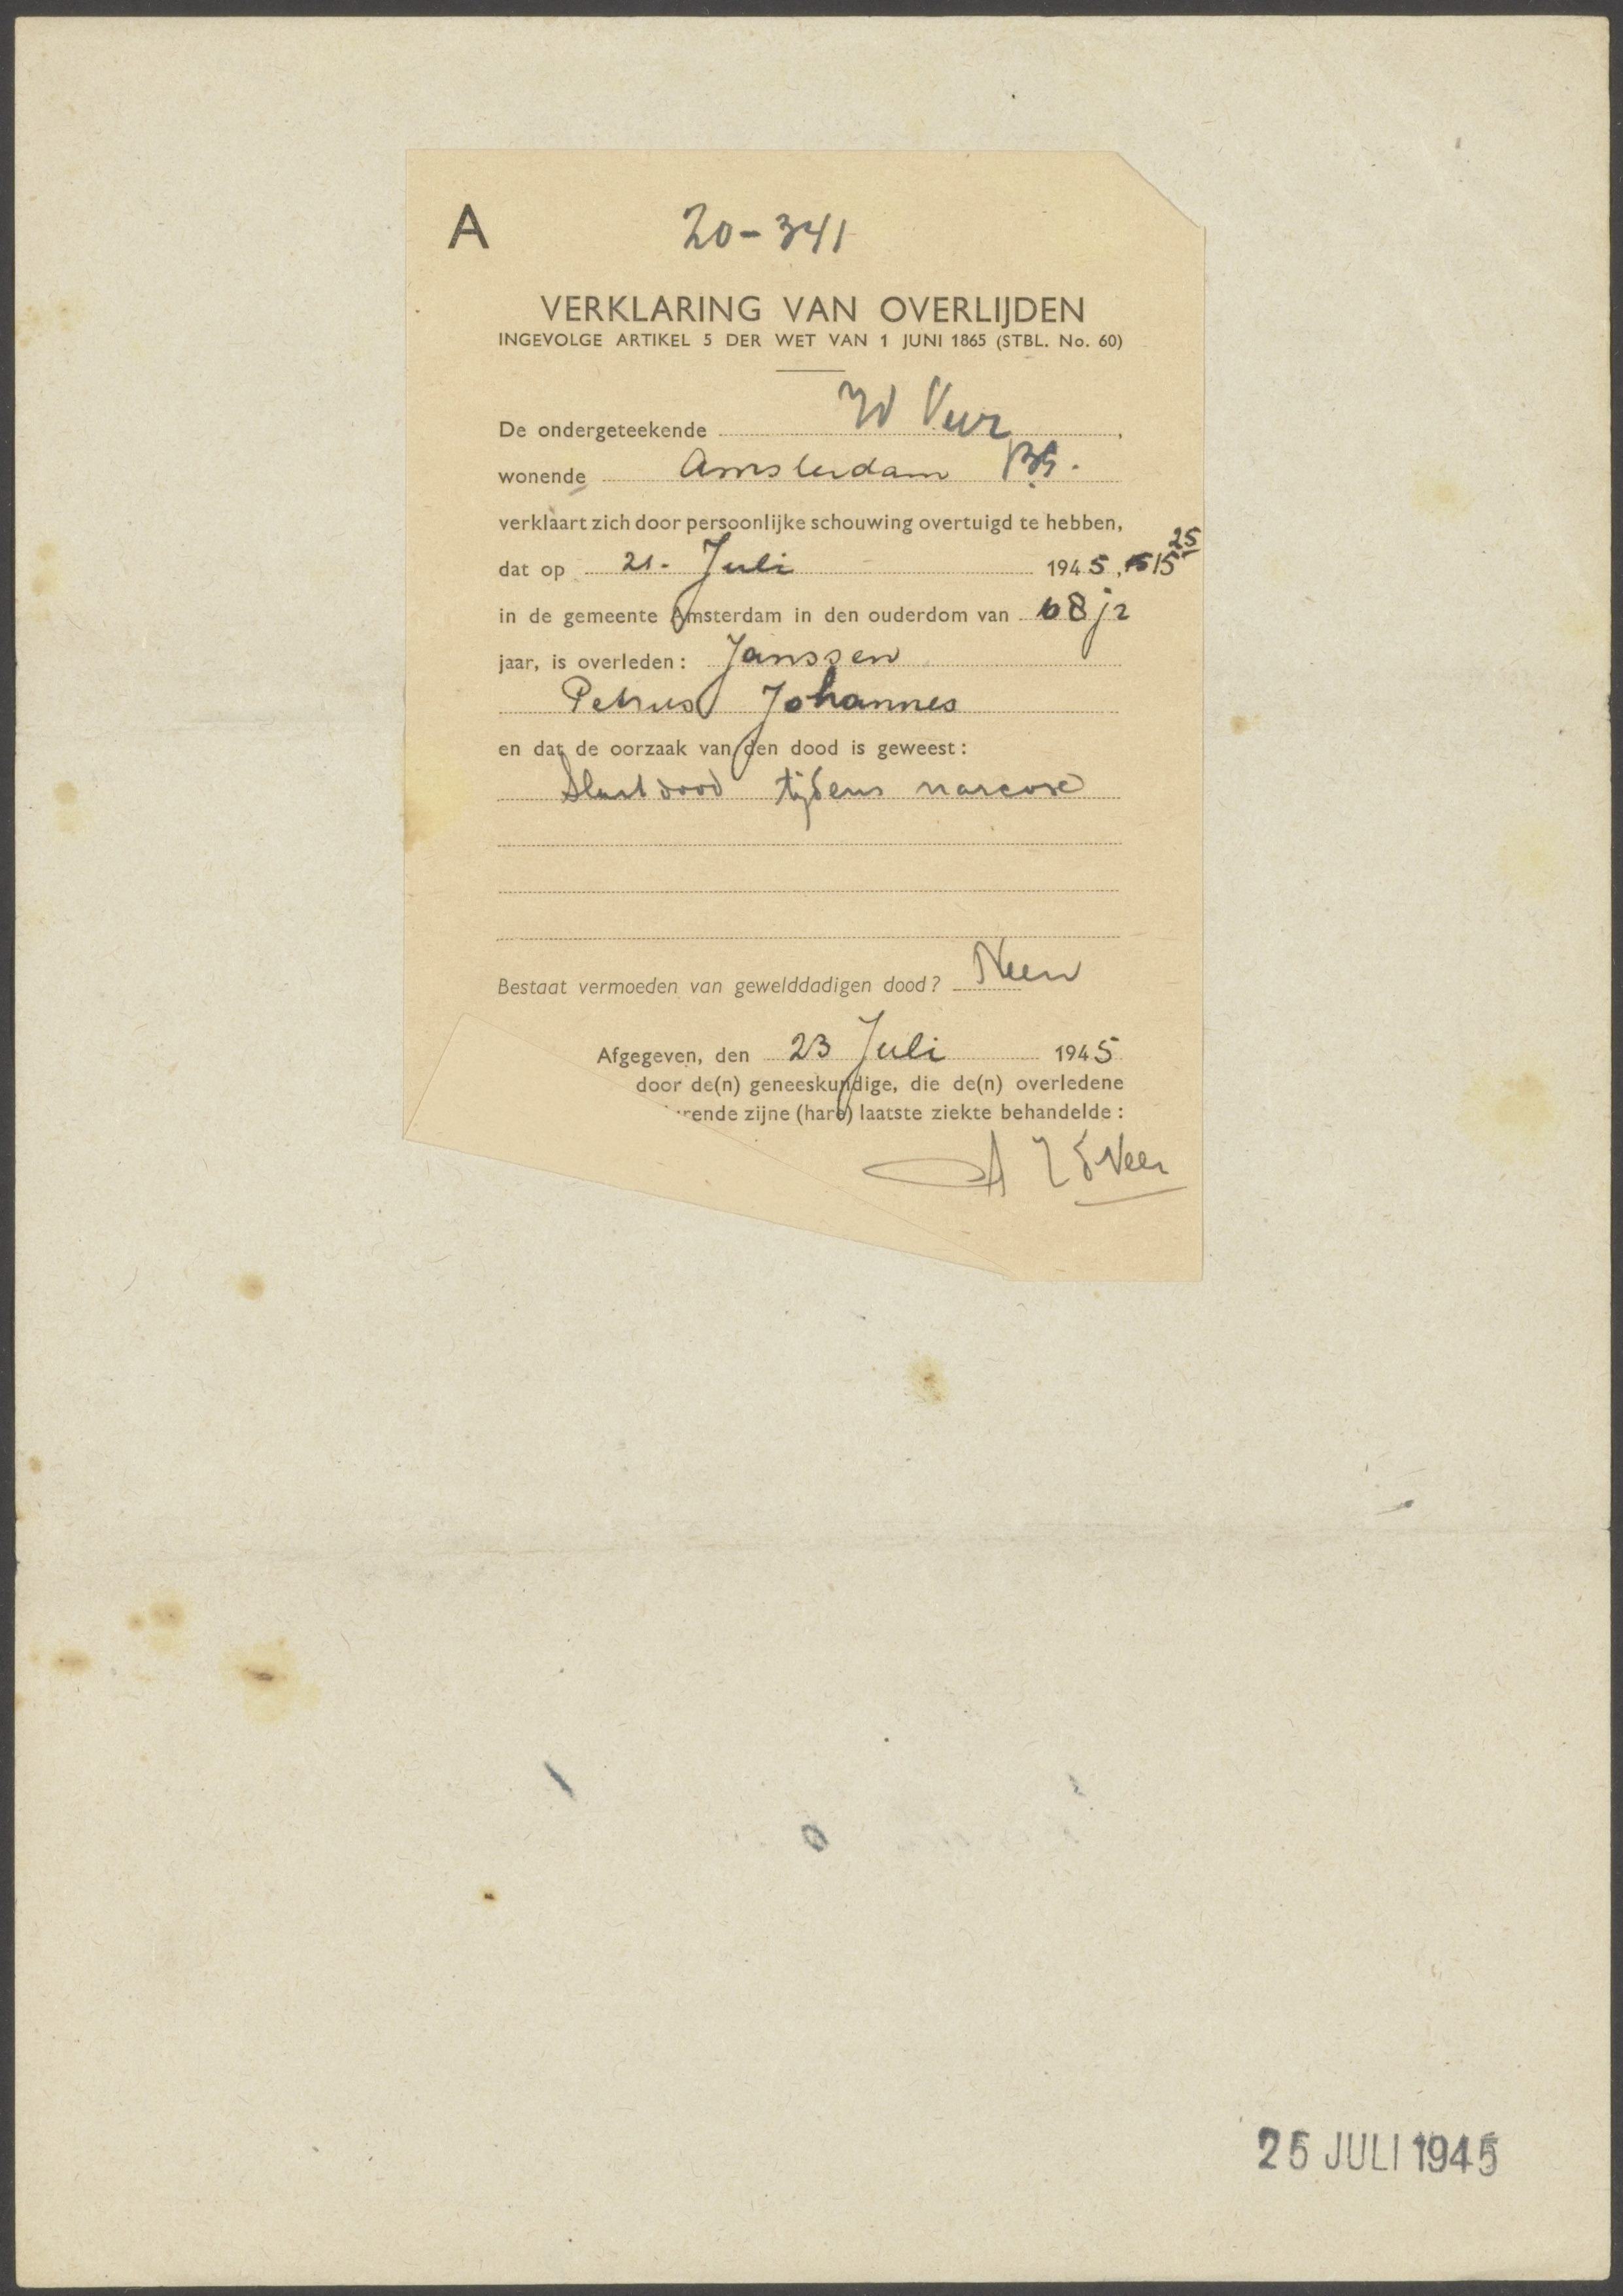 A
20-341
VERKLARING VAN OVERLIJDEN
INGEVOLGE ARTIKEL 5 DER WET VAN 1 JUNI 1865 (STBL. No. 60)
De ondergeteekende
wonende Amsterdam
verklaart zich door persoonlijke schouwing overtuigd te hebben,
dat op 21. Juli 1945, 15 25
in de gemeente Amsterdam in den ouderdom van 68 jr
jaar, is overleden: Janssen
Petrus Johannes
en dat de oorzaak van den dood is geweest:
tijdens narcose
Bestaat vermoeden van gewelddadigen dood? Neen
Afgegeven, den 23 Juli 1945
door de(n) geneeskundige, die de(n) overledene
rende zijne (hare) laatste ziekte behandelde:
25 JULI 1945